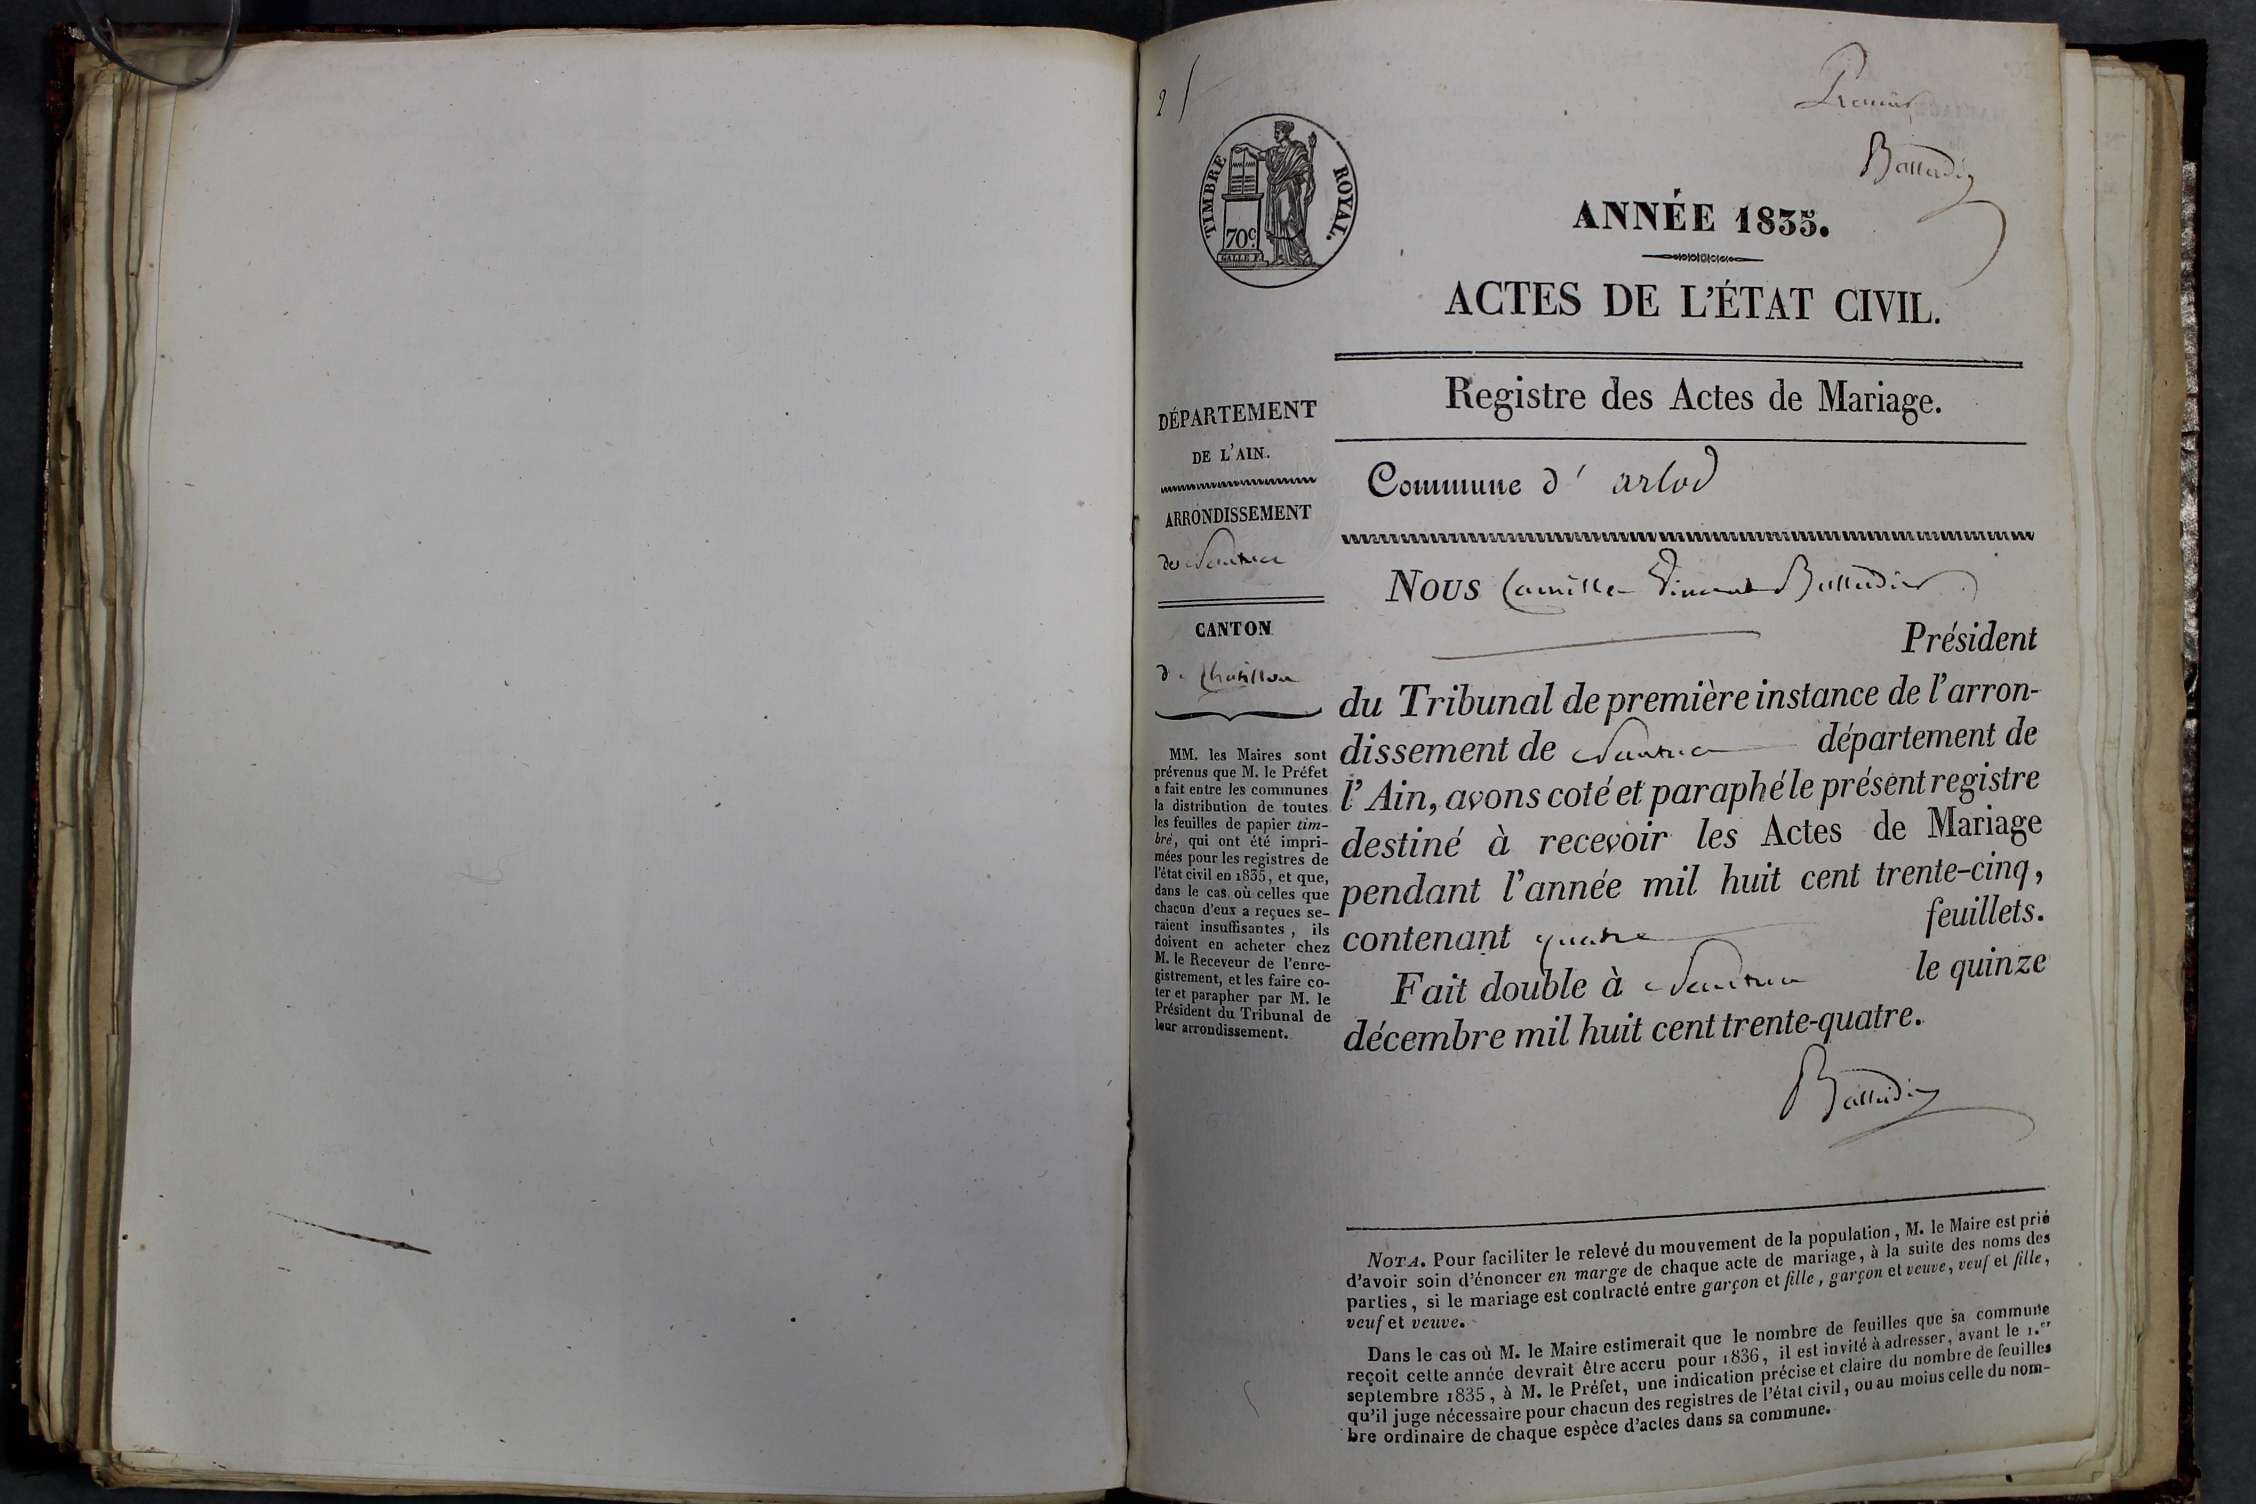 2
Premier
Balladier
TIMBRE ROYAL.
70c.
GALLE F.
ANNÉE 1835.
ACTES DE L'ÉTAT CIVIL.
Registre des Actes de Mariage.
DÉPARTEMENT
DE L'AIN.
ARRONDISSEMENT
de Nantua
CANTON
de Chatillon
MM. les Maires sont
prévenus que M. le Préfet
a fait entre les communes
la distribution de toutes
les feuilles de papier tim-
bré, qui ont été impri-
mées pour les registres de
l'état civil en 1835, et que,
dans le cas où celles que
chacun d'eux a reçues se-
raient insuffisantes, ils
doivent en acheter chez
M. le Receveur de l'enre-
gistrement, et les faire co-
ter et parapher par M. le
Président du Tribunal de
leur arrondissement.
Commune d' arlod
Nous Camille Vincent Balladier
Président
du Tribunal de première instance de l'arron-
dissement de Nantua département de
l'Ain, avons coté et paraphé le présent registre
destiné à recevoir les Actes de Mariage
pendant l'année mil huit cent trente-cinq,
contenant quatre feuillets.
Fait double à Nantua le quinze
décembre mil huit cent trente-quatre.
Balladier
NOTA. Pour faciliter le relevé du mouvement de la population, M. le Maire est prié
d'avoir soin d'énoncer en marge de chaque acte de mariage, à la suite des noms des
parties, si le mariage est contracté entre garçon et fille, garçon et veuve, veuf et fille,
veuf et veuve.
Dans le cas où M. le Maire estimerait que le nombre de feuilles que sa commune
reçoit cette année devrait être accru pour 1836, il est invité à adresser, avant le 1.er
septembre 1835, à M. le Préfet, une indication précise et claire du nombre de feuilles
qu'il juge nécessaire pour chacun des registres de l'état civil, ou au moins celle du nom-
bre ordinaire de chaque espèce d'actes dans sa commune.